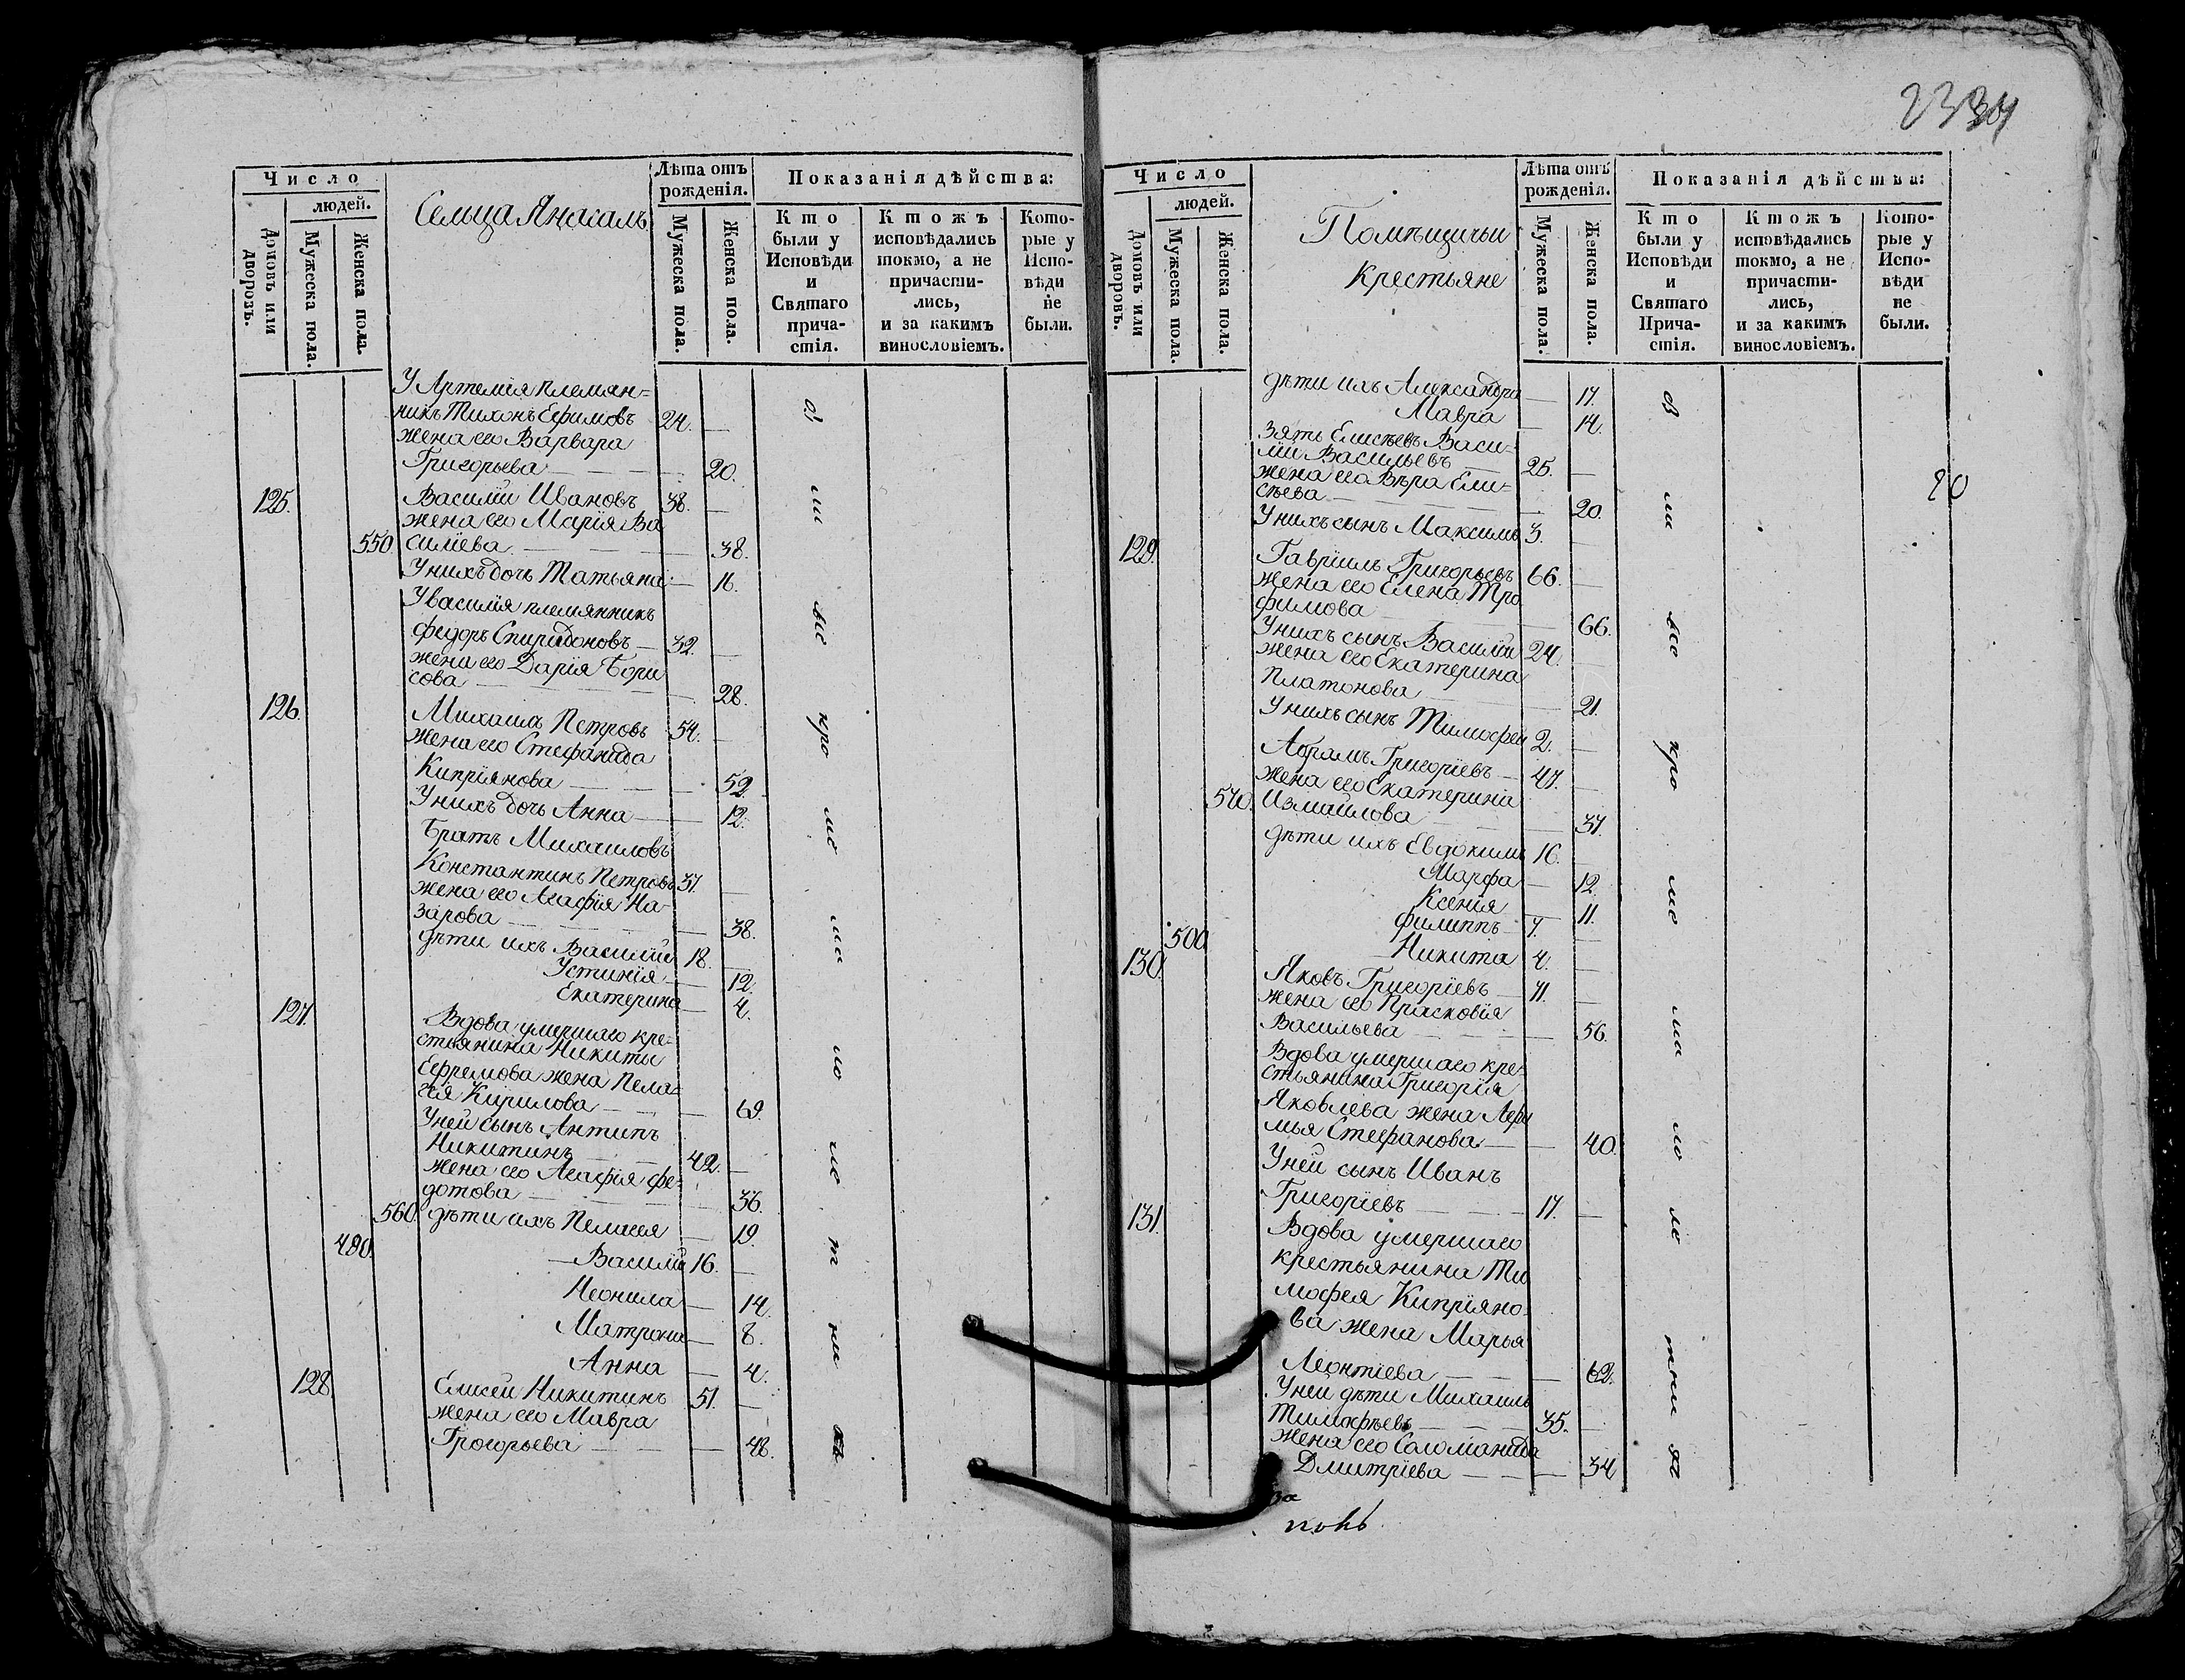 Число
людей.
Домовъ или дворовъ.
Мужеска пола.
Женска пола.
Сельца
Лѣта отъ рожденія.
Мужеска пола.
Женска пола.
Показанія дѣйства:
Кто были у Исповѣди и Святаго причастія.
Ктожъ исповѣдались токмо, а не причастились, и за какимъ винословіемъ.
Которые у Исповѣди не были.
У Артемія племян=
никъ Тихонъ Ефимовъ 24.
жена его Варвара
Григорьева 20.
125. Василій Ивановъ 38.
жена его Марія Ва
550 силіева 38.
У нихъ дочь Татьяна 16.
У Василія племянникъ
Федоръ Спиридоновъ 32.
жена его Дарія Бори
сова 28.
126. Михаилъ Петровъ 54.
жена его Стефанида
Кипріянова 52.
У нихъ дочь Анна 12.
Братъ Михаиловъ
Константинъ Петровъ 37.
жена его Агафія На-
зарова 38.
дѣти ихъ Василій 18.
Устинія 12.
Екатерина 4.
127. Вдова умершаго кре=
стьянина Никиты
Ефремова жена Пела=
гія Кирилова 69.
У ней сынъ Антипъ
Никитинъ 42.
жена его Агафія Фе=
дотова 36.
560. дѣти ихъ Пелагея 19.
490. Василій 16.
Неонила 14.
Матрона 8.
Анна 4.
128 Елисей Никитинъ 51.
жена его Мавра
Григорьева 48.
2334
Число
людей.
Домовъ или дворовъ.
Мужеска пола.
Женска пола.
Помѣщичьи
Крестьяне
Лѣта отъ рожденія.
Мужеска пола.
Женска пола.
Показанія дѣйства:
Кто были у Исповѣди и Святаго Причастія.
Ктожъ исповѣдались токмо, а не причастились, и за какимъ винословіемъ.
Которые у Исповѣди не были.
дѣти ихъ Александра 17.
Мавра 14.
зять Елисѣевъ Васи=
лій Васильевъ 25.
жена его Вѣра Ели=
сѣева 20.
У нихъ сынъ Максимъ 3.
129. Гавріилъ Григорьевъ 66.
жена его Елена Тро
фимова 66.
У нихъ сынъ Василій 24.
жена его Екатерина
Платонова 21.
У нихъ сынъ Тимофей 2.
Абрамъ Григоріевъ 47.
жена его Екатерина
570. Измаилова 37.
дѣти ихъ Евдокимъ 16.
Марфа 12.
Ксенія 11.
Филиппъ 7.
500 Никита 4.
130. Яковъ Григоріевъ 71.
жена его Прасковія
Васильева 56.
Вдова умершаго кре=
стьянина Григорія
Яковлева жена
Стефанова 40.
У ней сынъ Иванъ
Григоріевъ 17.
131. Вдова умершаго
крестьянина Ти
мофея Кипріяно
ва жена Марья
Леонтіева 62.
У ней дѣти Михаилъ
Тимофѣевъ 35.
жена его Соломанида
Дмитріева 34